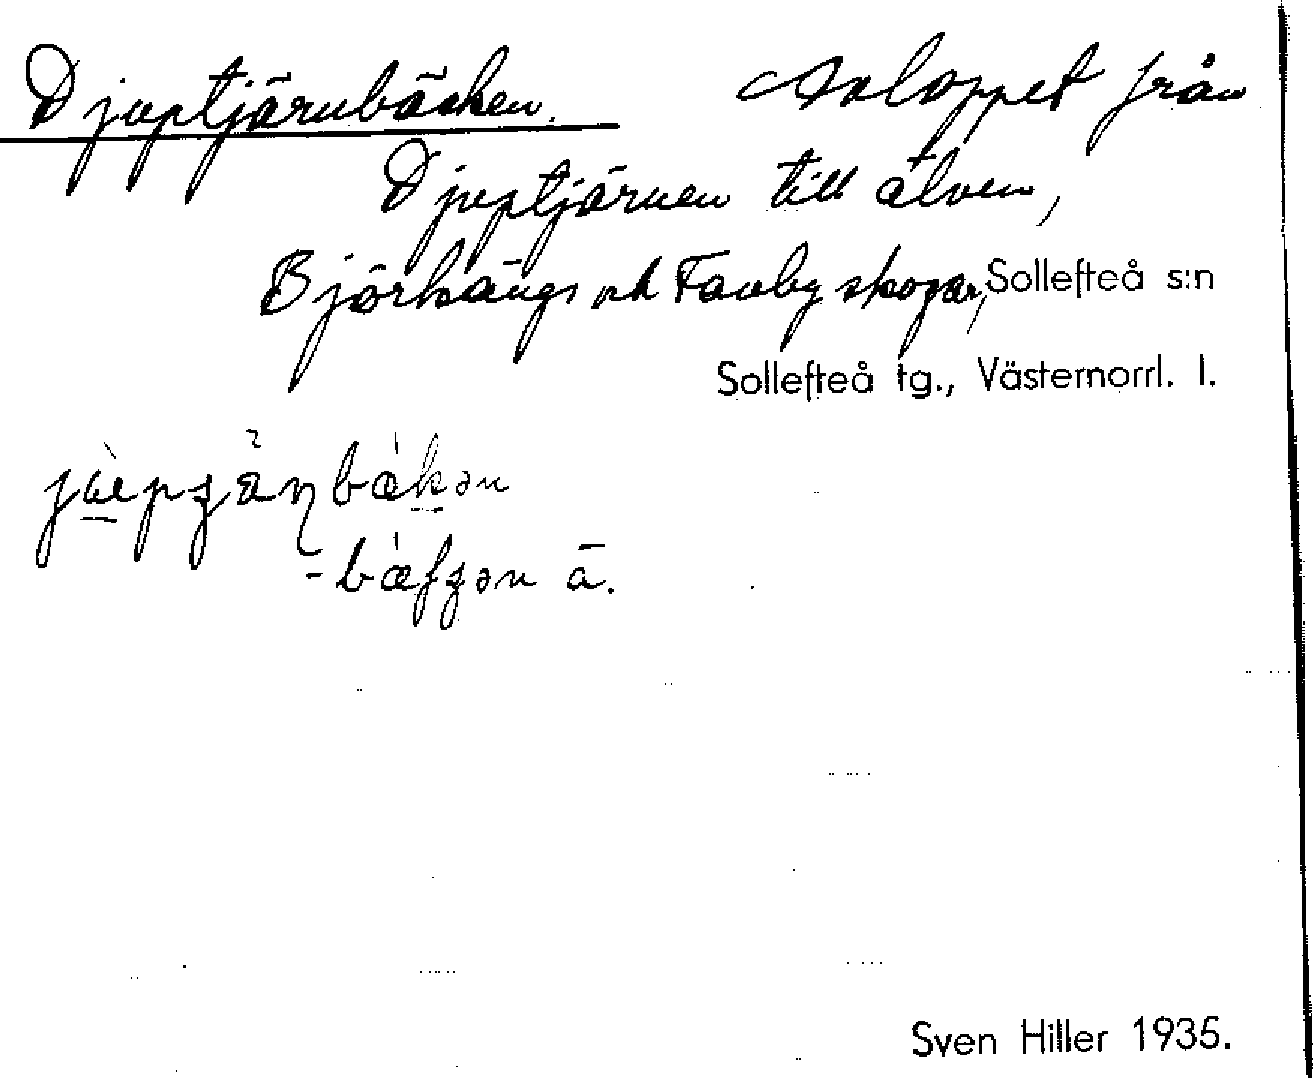 Djuptjärnbäcken. Avloppet från
Djuptjärnen till älven,
Björkängs och Famby skogar, Sollefteå s:n
Sollefteå tg., Västernorrl. l.
-bæ̀fʒən ä.
Sven Hiller 1935.